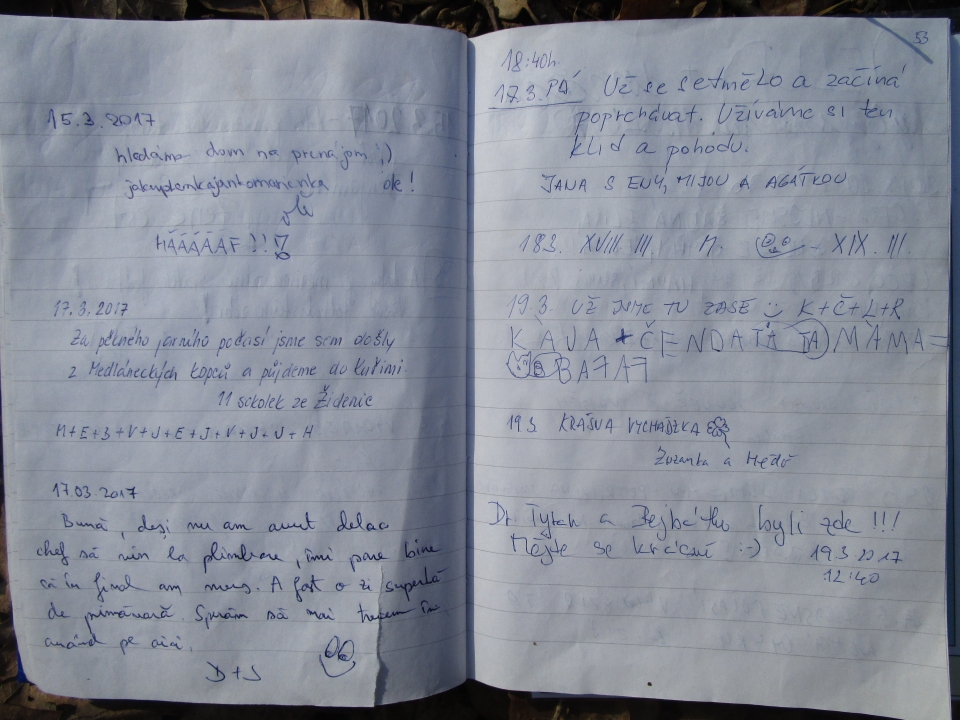 15.3.2017
hledáme dom na prenájom ;)
ok!
ole
HÁÁÁÁÁF !!!
17.3.2017
Za pěkného jarního počasí jsme sem došly
z Medláneckých kopců a půjdeme do Kuřimi.
11 sokolek ze Židenic
M+E+3+V+J+E+J+V+J+J+H
17.03.2017
Bună, deși nu am avut delac
chef să vin la plimbare, îmi pare bine
că în final am mers. A fost o zi superbă
de primăvară. Sperăm să mai trecem în
curând pe aici.
D+J
53
18:40h.
17.3. PÁ Už se setmělo a začíná
poprchávat. Užíváme si ten
klid a pohodu.
JANA S ENY, MIJOU A AGÁTKOU
18.3. XVIII. III. M. XIX. III.
19.3. UŽ JSME TU ZASE K+Č+L+R
KAJA + ČENDA TÁTA MÁMA =
19.3. KRÁSNA VYCHÁDZKA
Zuzanka a
Dr. Tytch a Bejbátko byli zde !!!
Mějte se krásně :-) 19.3 2017
12:40